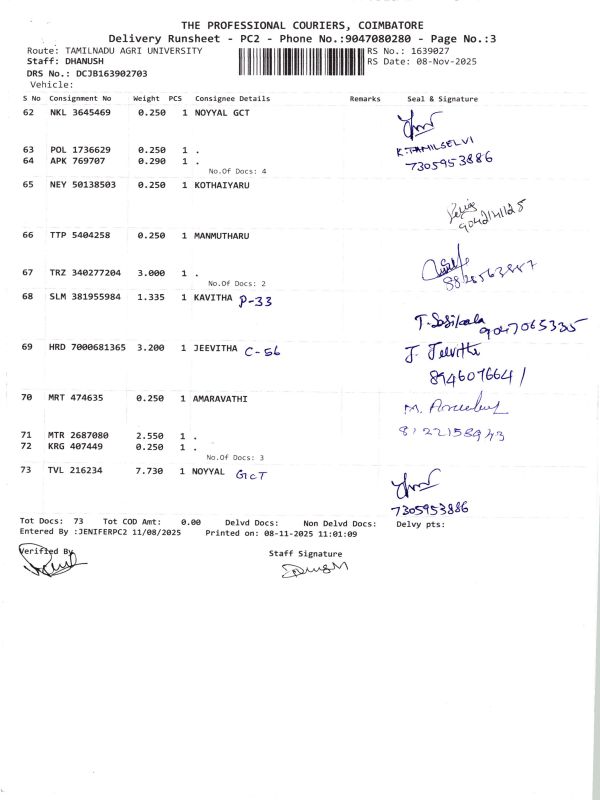 THE PROFESSIONAL COURIERS, COIMBATORE
Delivery Runsheet - PC2 - Phone No.:9047080280 - Page No.:3
Route: TAMILNADU AGRI UNIVERSITY RS No.: 1639027
Staff: DHANUSH RS Date: 08-Nov-2025
DRS No.: DCJB163902703
Vehicle:
S No Consignment No Weight PCS Consignee Details Remarks Seal & Signature
62 NKL 3645469 0.250 1 NOYYAL GCT
K.TAMILSELVI
63 POL 1736629 0.250 1 .
64 APK 769707 0.290 1 . 7305953886
No.Of Docs: 4
65 NEY 50138503 0.250 1 KOTHAIYARU
66 TTP 5404258 0.250 1 MANMUTHARU
67 TRZ 340277204 3.000 1 .
No.Of Docs: 2
68 SLM 381955984 1.335 1 KAVITHA P-33
T. Sasikala 9047065335
69 HRD 7000681365 3.200 1 JEEVITHA C-56 J. Jeevitha
8946076641
70 MRT 474635 0.250 1 AMARAVATHI
71 MTR 2687080 2.550 1 . 8122158943
72 KRG 407449 0.250 1 .
No.Of Docs: 3
73 TVL 216234 7.730 1 NOYYAL GCT
7305953886
Tot Docs: 73 Tot COD Amt: 0.00 Delvd Docs: Non Delvd Docs: Delvy pts:
Entered By :JENIFERPC2 11/08/2025 Printed on: 08-11-2025 11:01:09
Verified By Staff Signature